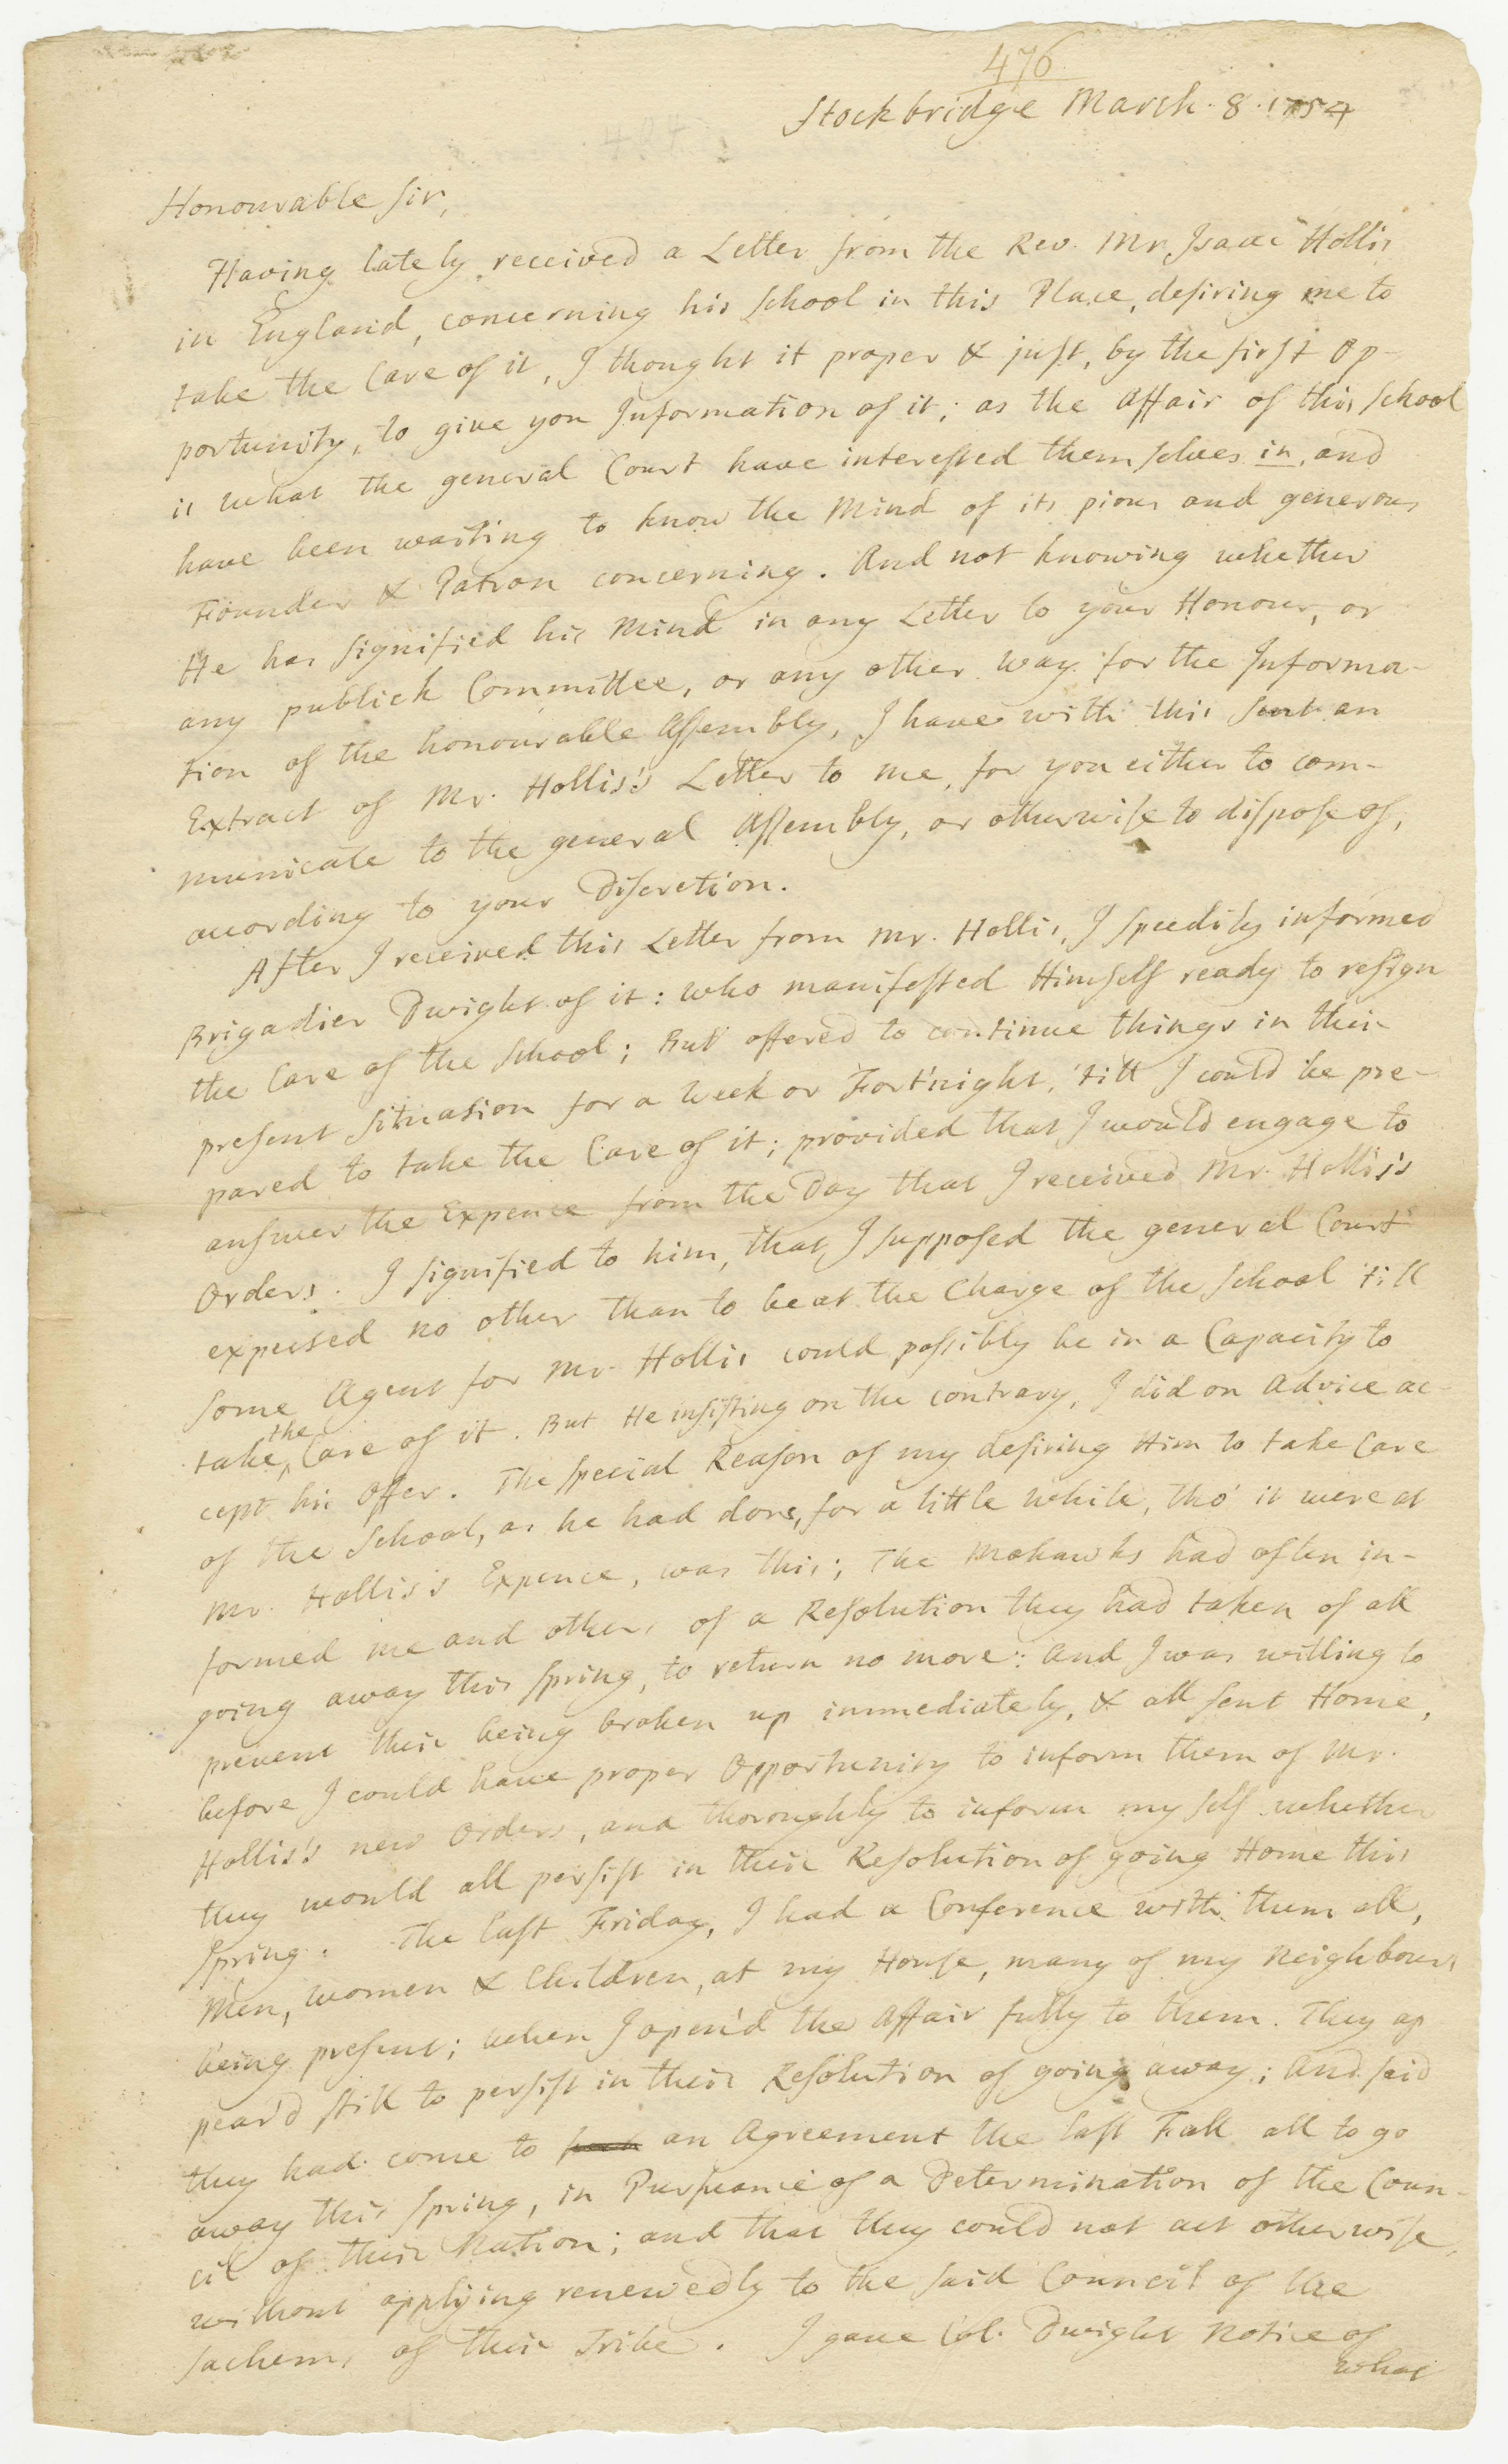 476
Stockbridge March. 8. 1754
Honourable Sir,
Having lately received a Letter from the Rev. Mr. Isaac Hollis
in England, concerning his School in this Place, desiring me to
take the Care of it, I thought it proper & just, by the first Op-
portunity, to give you Information of it; as the Affair of this School
is what the general Court have interested themselves in, and
have been waiting to know the Mind of its pious and generous
Founder & Patron concerning. And not knowing whether
He has signified his Mind in any Letter to your Honour, or
any publick Committee, or any other way for the Informa-
tion of the honourable Assembly, I have with this sent an
Extract of Mr. Hollis's Letter to me, for you either to com-
municate to the general Assembly, or otherwise to dispose of,
according to your Discretion.
After I received this Letter from Mr. Hollis, I speedily informed
Brigadier Dwight of it: who manifested Himself ready to resign
the Care of the School; But offered to continue things in their
present Situation for a Week or Fortnight, 'till I could be pre-
pared to take the Care of it; provided that I would engage to
answer the Expence from the Day that I received Mr. Hollis's
Orders. I signified to him, that I supposed the general Court
expected no other than to be at the Charge of the School 'till
some Agent for Mr. Hollis could possibly be in a Capacity to
take the Care of it. But He insisting on the contrary, I did on Advice ac-
cept his Offer. The special Reason of my desiring Him to take Care
of the School, as he had done, for a little while, tho' it were at
Mr. Hollis's Expence, was this; The Mohawks had often in-
formed me and others of a Resolution they had taken of all
going away this Spring, to return no more: And I was willing to
prevent their being broken up immediately, & all sent Home,
before I could have proper Opportunity to inform them of Mr.
Hollis's new Orders, and thoroughly to inform my self whether
they would all persist in their Resolution of going Home this
Spring. The last Friday, I had a Conference with them all,
Men, women & Children, at my House, many of my Neighbours
being present; when I open'd the Affair fully to them. They ap
pear'd still to persist in their Resolution of going away; And said
they had come to an Agreement the last Fall all to go
away this Spring, in Pursuance of a Determination of the Coun-
cil of their Nation; and that they could not act otherwise,
without applying renewedly to the said Council of the
Sachems of their Tribe. I gave Col. Dwight Notice of
what